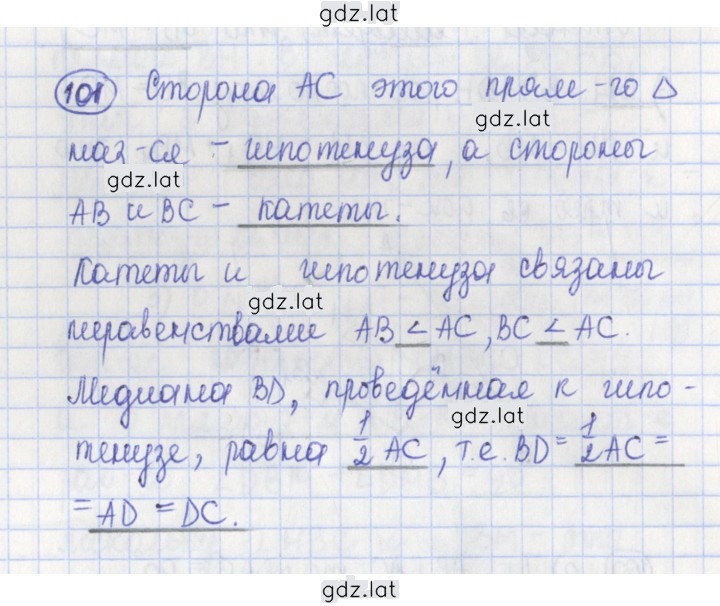 gdz.lat
101 Сторона AC этого прям-го △
gdz.lat
наз-ся - гипотенуза, а стороны
gdz.lat
AB и BC - катеты.
Катеты и гипотенуза связаны
gdz.lat
неравенствами AB < AC, BC < AC.
Медиана BD, проведённая к гипо-
gdz.lat
тенузе, равна 1/2 AC, т.е. BD = 1/2 AC =
= AD = DC.
gdz.lat